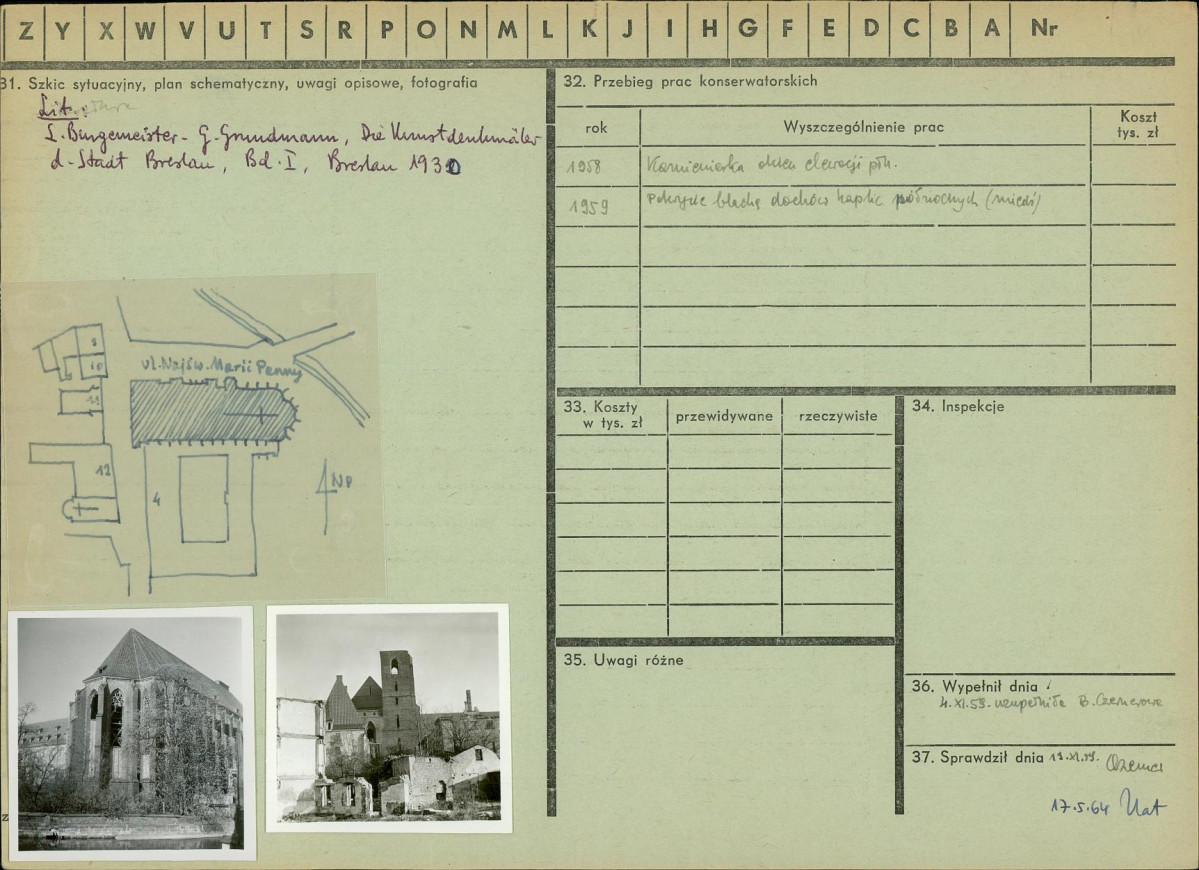 Z Y X W V U T S R P O N M L K J I H G F E D C B A Nr
31. Szkic sytuacyjny, plan schematyczny, uwagi opisowe, fotografia
Lit.
L. Burgemeister - G. Grundmann, Die Kunstdenkmäler
d. Stadt Breslau, Bd. I, Breslau 1930
9
10
11
12
4
ul. Najśw. Marii Panny
32. Przebieg prac konserwatorskich
rok
Wyszczególnienie prac
Koszt
tys. zł
1958 Kamieniarka okien elewacji płn.
1959 Pokrycie blachą dachów kaplic północnych (miedź)
33. Koszty
w tys. zł
przewidywane
rzeczywiste
34. Inspekcje
35. Uwagi różne
36. Wypełnił dnia
4.XI.59. uzupełniła B. Czernerowa
37. Sprawdził dnia
17.5.64